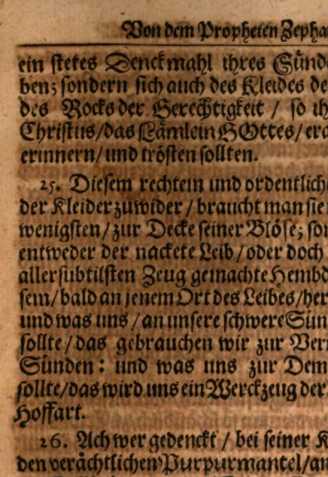 Von dem Propheten Zepha
ein stetes Denckmahl ihres Sünde
ben; sondern sich auch des Kleides de
des Rocks der Gerechtigkeit / so ih
Christus/das Lämlein GOttes/erw
erinnern/und trösten sollten.
25. Diesem rechtem und ordentliche
der Kleider zuwider / braucht man sie
wenigsten / zur Decke seiner Blöse; son
entweder der nackete Leib / oder doch
allersubtilsten Zeug gemachte Hembd
sem/bald an jenem Ort des Leibes/her
und was uns / an unsere schwere Sün
sollte / das gebrauchen wir zur Ver
Sünden: und was uns zur Dem
sollte/das wird uns ein Werckzeug der
Hoffart.
26. Ach wer gedenckt / bei seiner K
den verächtlichen Purpurmantel/an